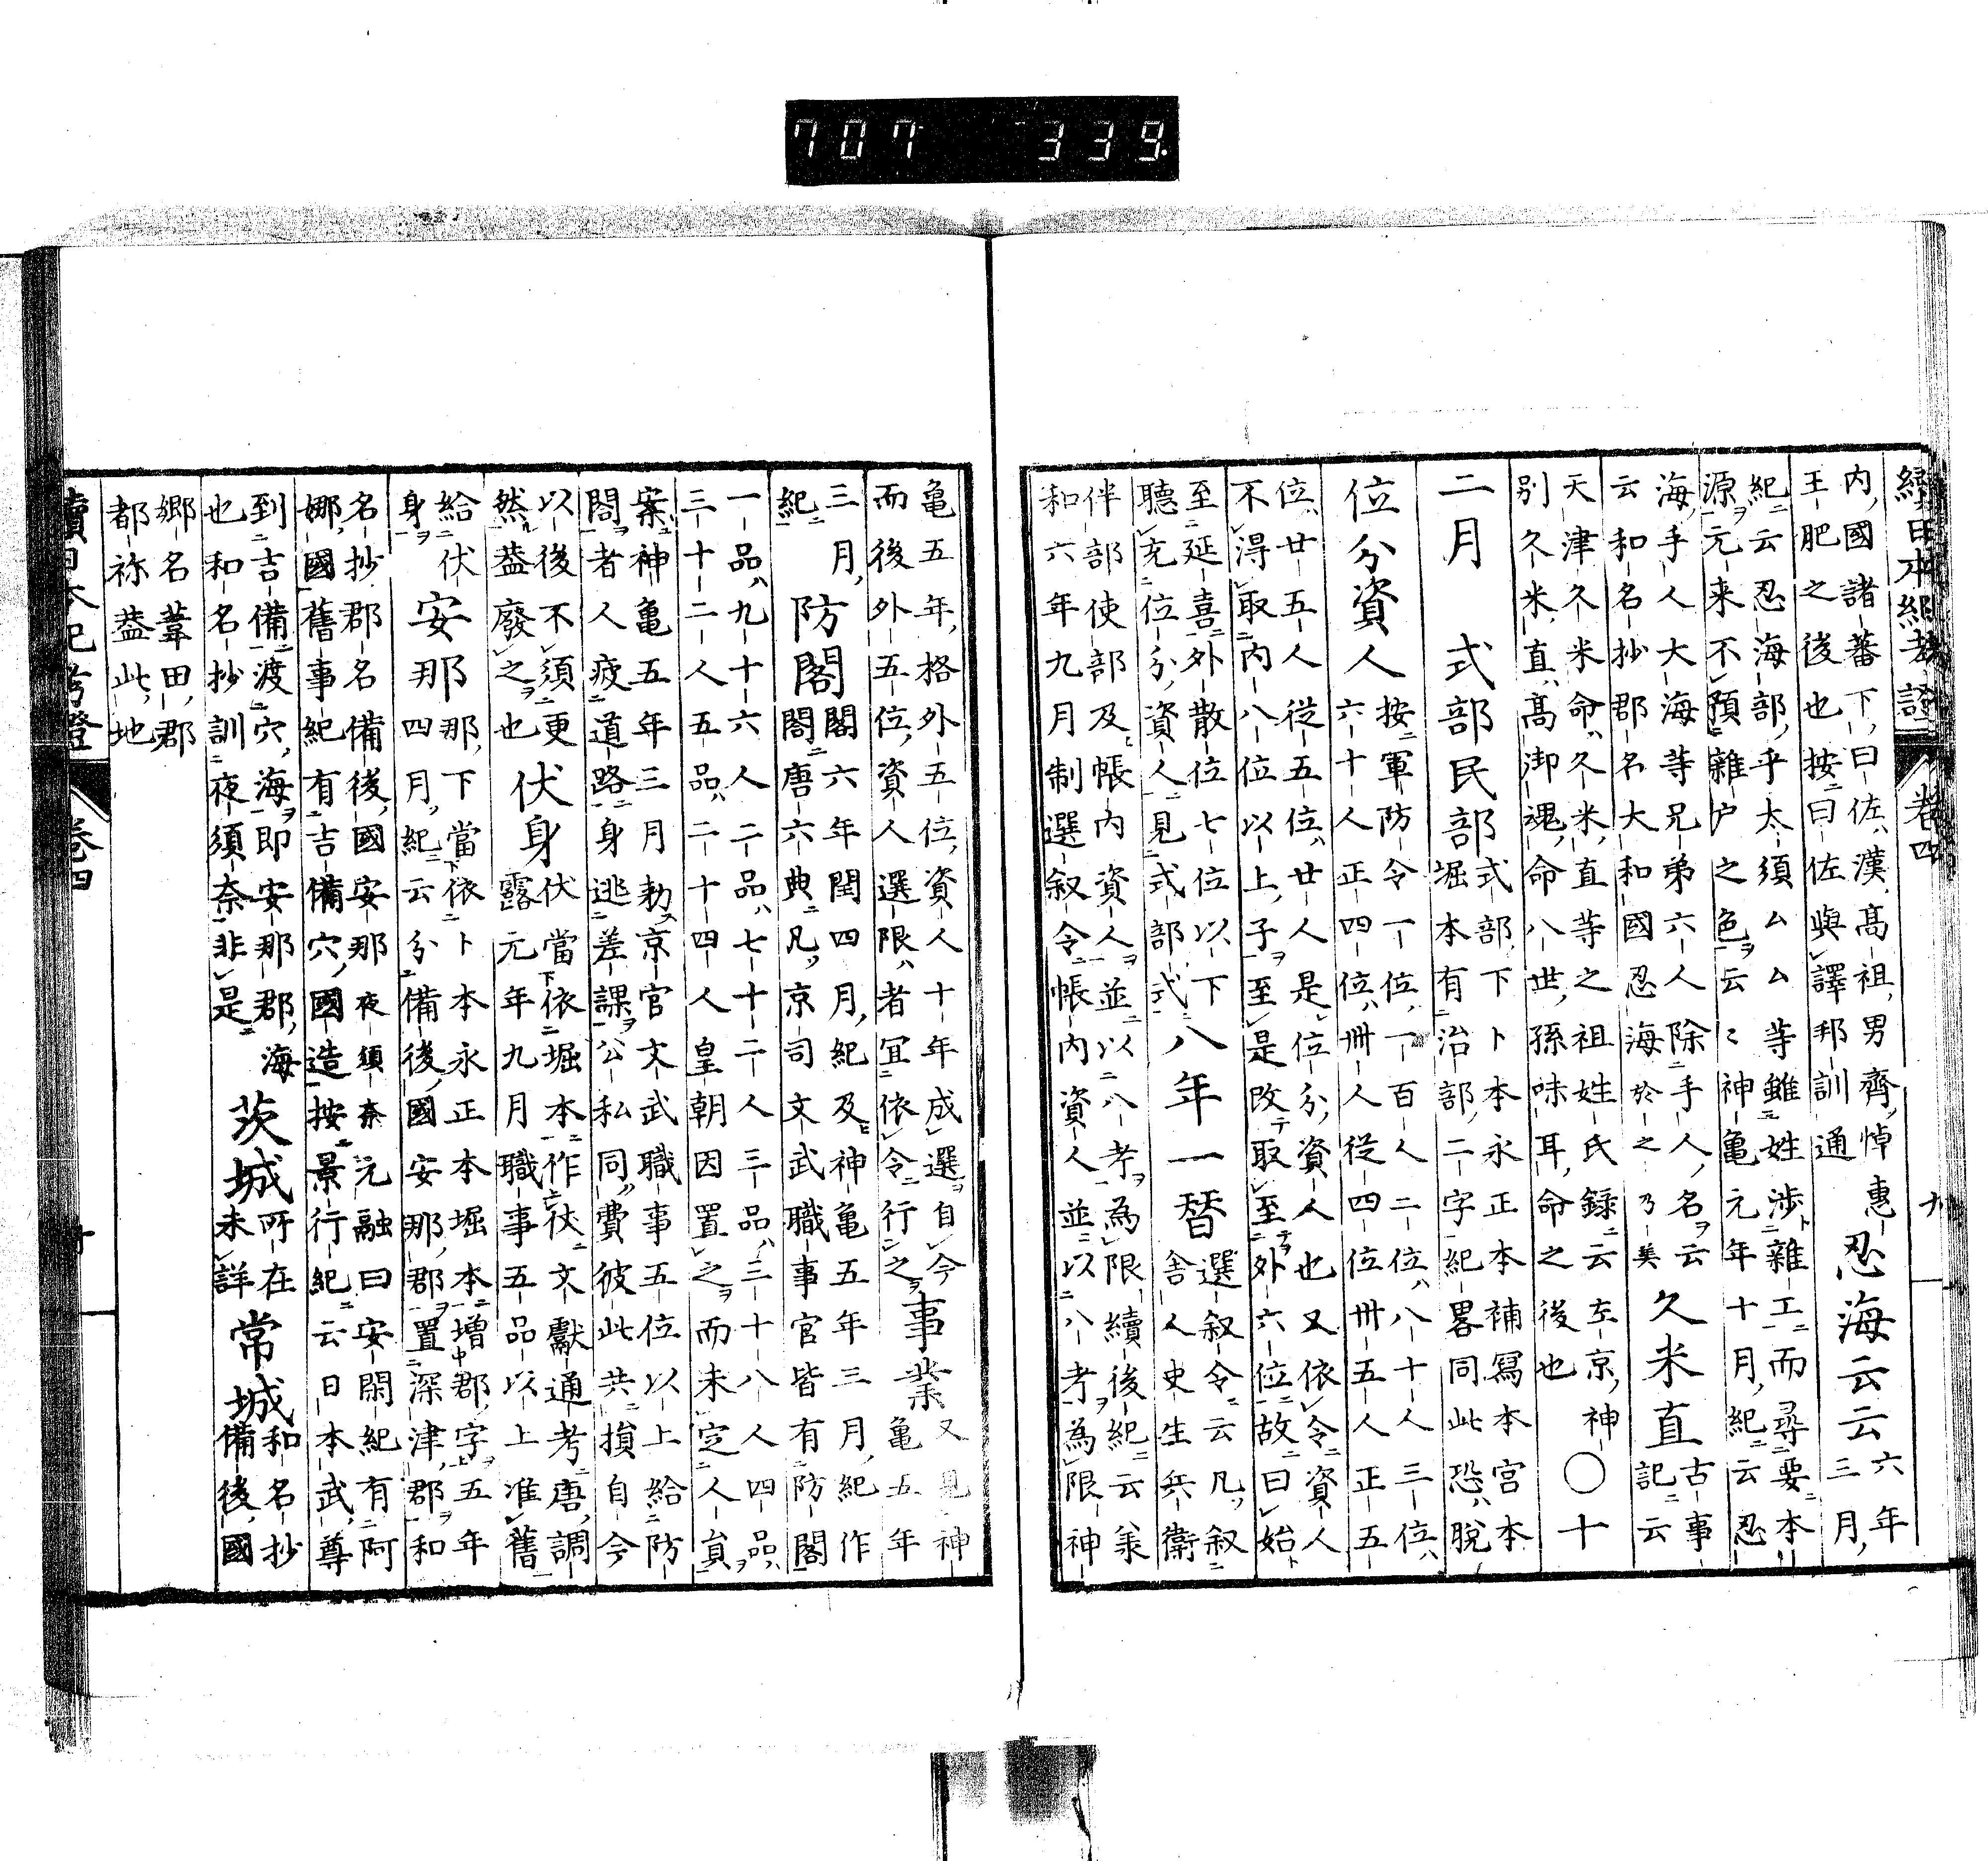 707 339
續日本紀考證 卷四 九
内國諸蕃下曰佐漢高祖男齊悼惠
王肥之後也按曰佐與譯邦訓通
忍海云云
六年
三月
紀云忍海部乎太須厶厶等雖姓渉雜工而尋要本
源元来不預雜戸之色云〻神亀元年十月紀云忍
海手人大海等兄弟六人除手人名云
云和名抄郡名大和國忍海於之乃美
久米直
古事
記云
天津久米命久米直等之祖姓氏録云左京神
別久米直高御魂命八世孫味耳命之後也
〇十
二月 式部民部
式部下卜本永正本補寫本宮本
堀本有治部二字紀畧同此恐脱
位分資人
按軍防令一位一百人二位八十人三位
六十人正四位卌人從四位卅五人正五
位廿五人從五位廿人是位分資人也又依令資人
不淂取内八位以上子至是改取至外六位故曰始
至延喜外散位七位以下
聽充位分資人見式部式
八年一替
選叙令云凡叙
舎人史生兵衛
伴部使部及帳内資人並以八考為限續後紀云羕
和六年九月制選叙令帳内資人並以八考為限神
亀五年格外五位資人十年成選自今
而後外五位資人選限者宜依令行之
事業
又見神
亀五年
三月
紀
防閤
閤六年閏四月紀及神亀五年三月紀作
閤唐六典凡京司文武職事官皆有防閤
一品九十六人二品七十二人三品三十八人四品
三十二人五品二十四人皇朝因置之而未定人貟
案神亀五年三月勅京官文武職事五位以上給防
閤者人疲道路身逃差課公私同費彼此共損自今
以後不須更
然葢廢之也
伏身
伏當依堀本作仗文獻通考唐調
露元年九月職事五品以上准舊
給伏
身
安那
那下當依卜本永正本堀本増郡字五年
四月紀云分備後國安那郡置深津郡和
名抄郡名備後國安那夜須奈元融曰安閑紀有阿
娜國舊事紀有吉備穴國造按景行紀云日本武尊
到吉備渡穴海即安那郡海
也和名抄訓夜須奈非是
茨城
所在
未詳
常城
和名抄
備後國
郷名葦田郡
都祢葢此地
續日本紀考證 卷四